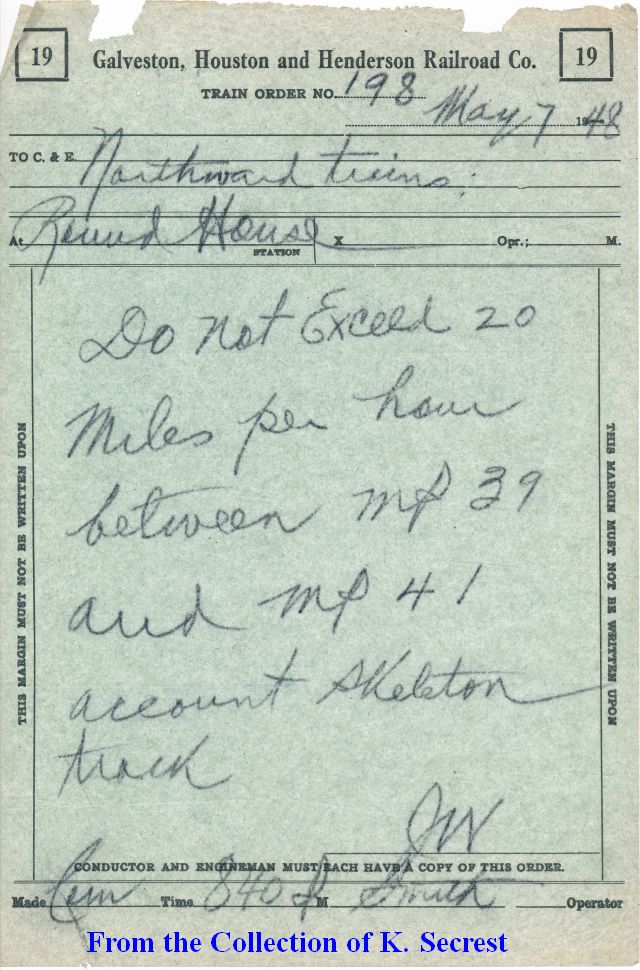 19 Galveston, Houston and Henderson Railroad Co. 19
TRAIN ORDER NO. 198
May 7 1948
TO C. & E. Northward trains:
At Round House X Opr.; M.
STATION
Do not Exceed 20
Miles per hour
between MP 39
and MP 41
account Skeleton
track
JW
THIS MARGIN MUST NOT BE WRITTEN UPON
THIS MARGIN MUST NOT BE WRITTEN UPON
CONDUCTOR AND ENGINEMAN MUST EACH HAVE A COPY OF THIS ORDER.
Made Com Time 840 P M Smith Operator
From the Collection of K. Secrest